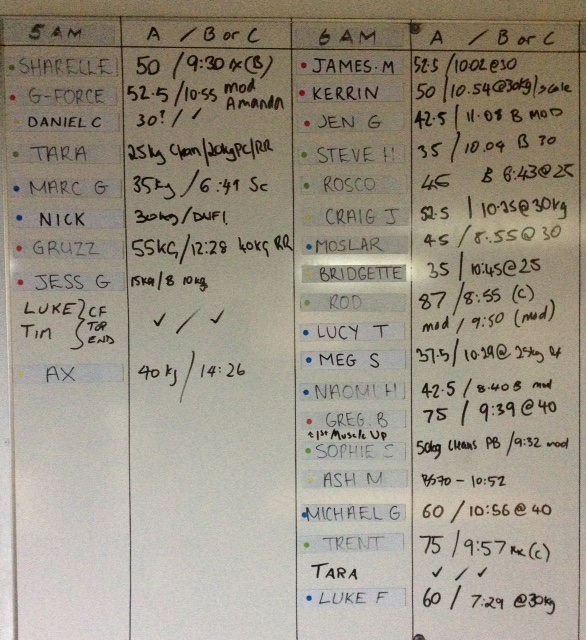 5 AM A / B or C
SHARELLE 50 / 9:30 rx (B)
G-FORCE 52.5 / 10:55 mod Amanda
DANIEL C 30? / ✓
TARA 25kg Clean / 20kg PC / RR
MARC G 35kg / 6:41 Sc
NICK 30kg / DNF
GRUZZ 55KG / 12:28 40KG RR
JESS G 15kg / 8 10kg
LUKE } CF
TIM } TOP END ✓ / ✓
AX 40kg / 14:26
6 AM A / B or C
JAMES.M 52.5 / 1002@30
KERRIN 50 / 10.54@30kg / scale
JEN G 42.5 / 11.08 B MOD
STEVE H 35 / 10.04 B 30
ROSCO 45 B 8:43@25
CRAIG J 52.5 / 10:35@30kg
MOSLAR 45 / 8:55@30
BRIDGETTE 35 / 10:45@25
ROD 87 / 8:55 (C)
LUCY T mod / 9:50 (mod)
MEG S 37.5 / 10:29@25kg
NAOMI H 42.5 / 8.40 B mod
GREG.B 75 / 9:39@40
1st Muscle Up
SOPHIE 50kg Cleans PB / 9:32 mod
ASH M BS70 - 10:52
MICHAEL G 60 / 10:56@40
TRENT 75 / 9:57 Rx (C)
TARA ✓ / ✓
LUKE F 60 / 7:29 @30kg